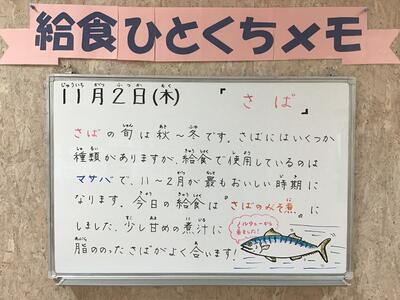 給食ひとくちメモ
11月2日(木) 「さば」
さばの旬は秋～冬です。さばにはいくつか
種類がありますが、給食で使用しているのは
マサバで、11～2月が最もおいしい時期に
なります。今日の給食は『さばのみそ煮』に
しました。少し甘めの煮汁に
脂ののったさばがよく合います!
ノルウェーから
来ました!